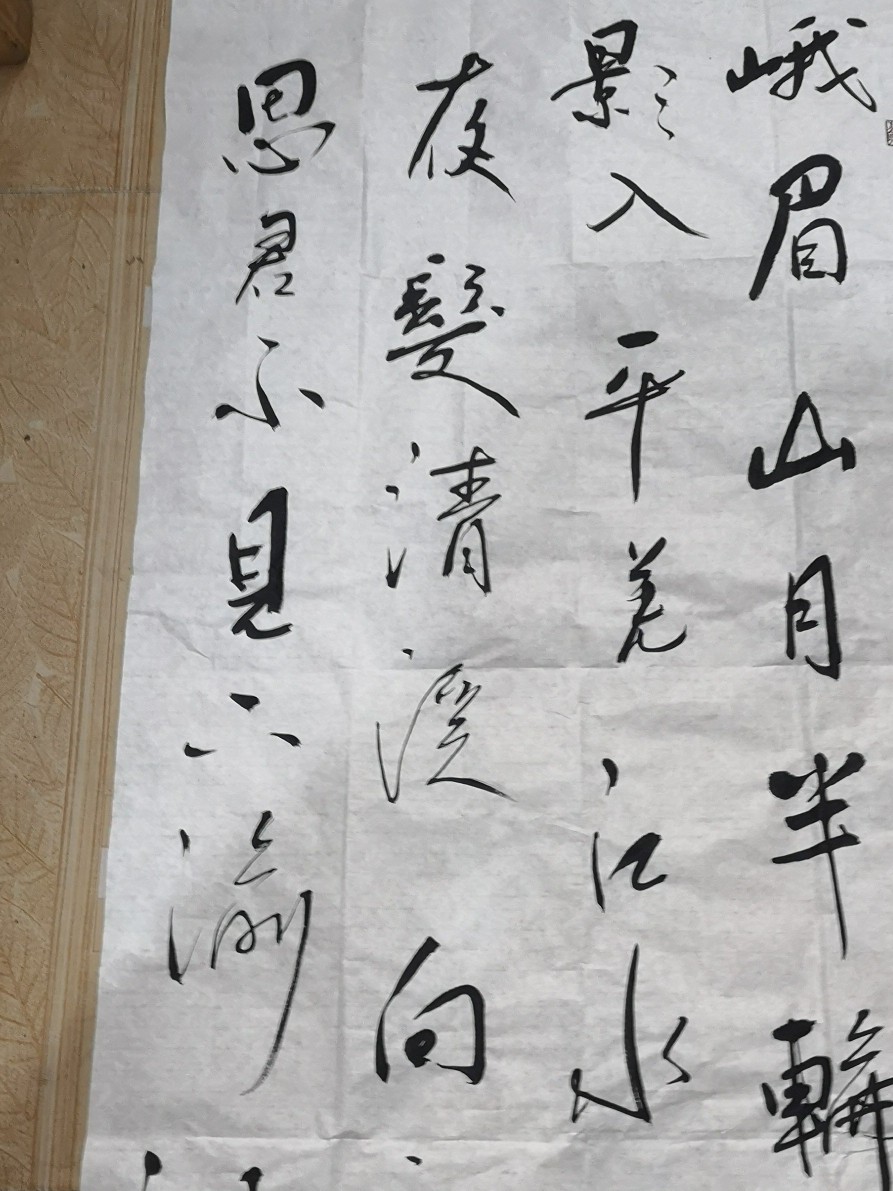 峨眉山月半輪
影入平羌江水
夜髮清溪向
思君不見下渝